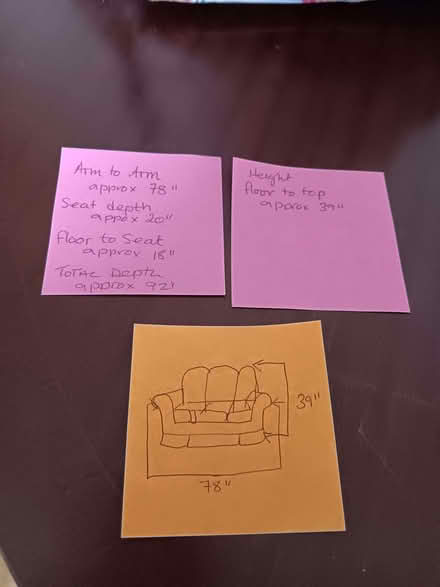 Arm to Arm
approx 78"
Seat depth
appox 20"
Floor to Seat
approx 18"
TOTAL DEPTH
approx 92"
Height
floor to top
approx 39"
39"
78"